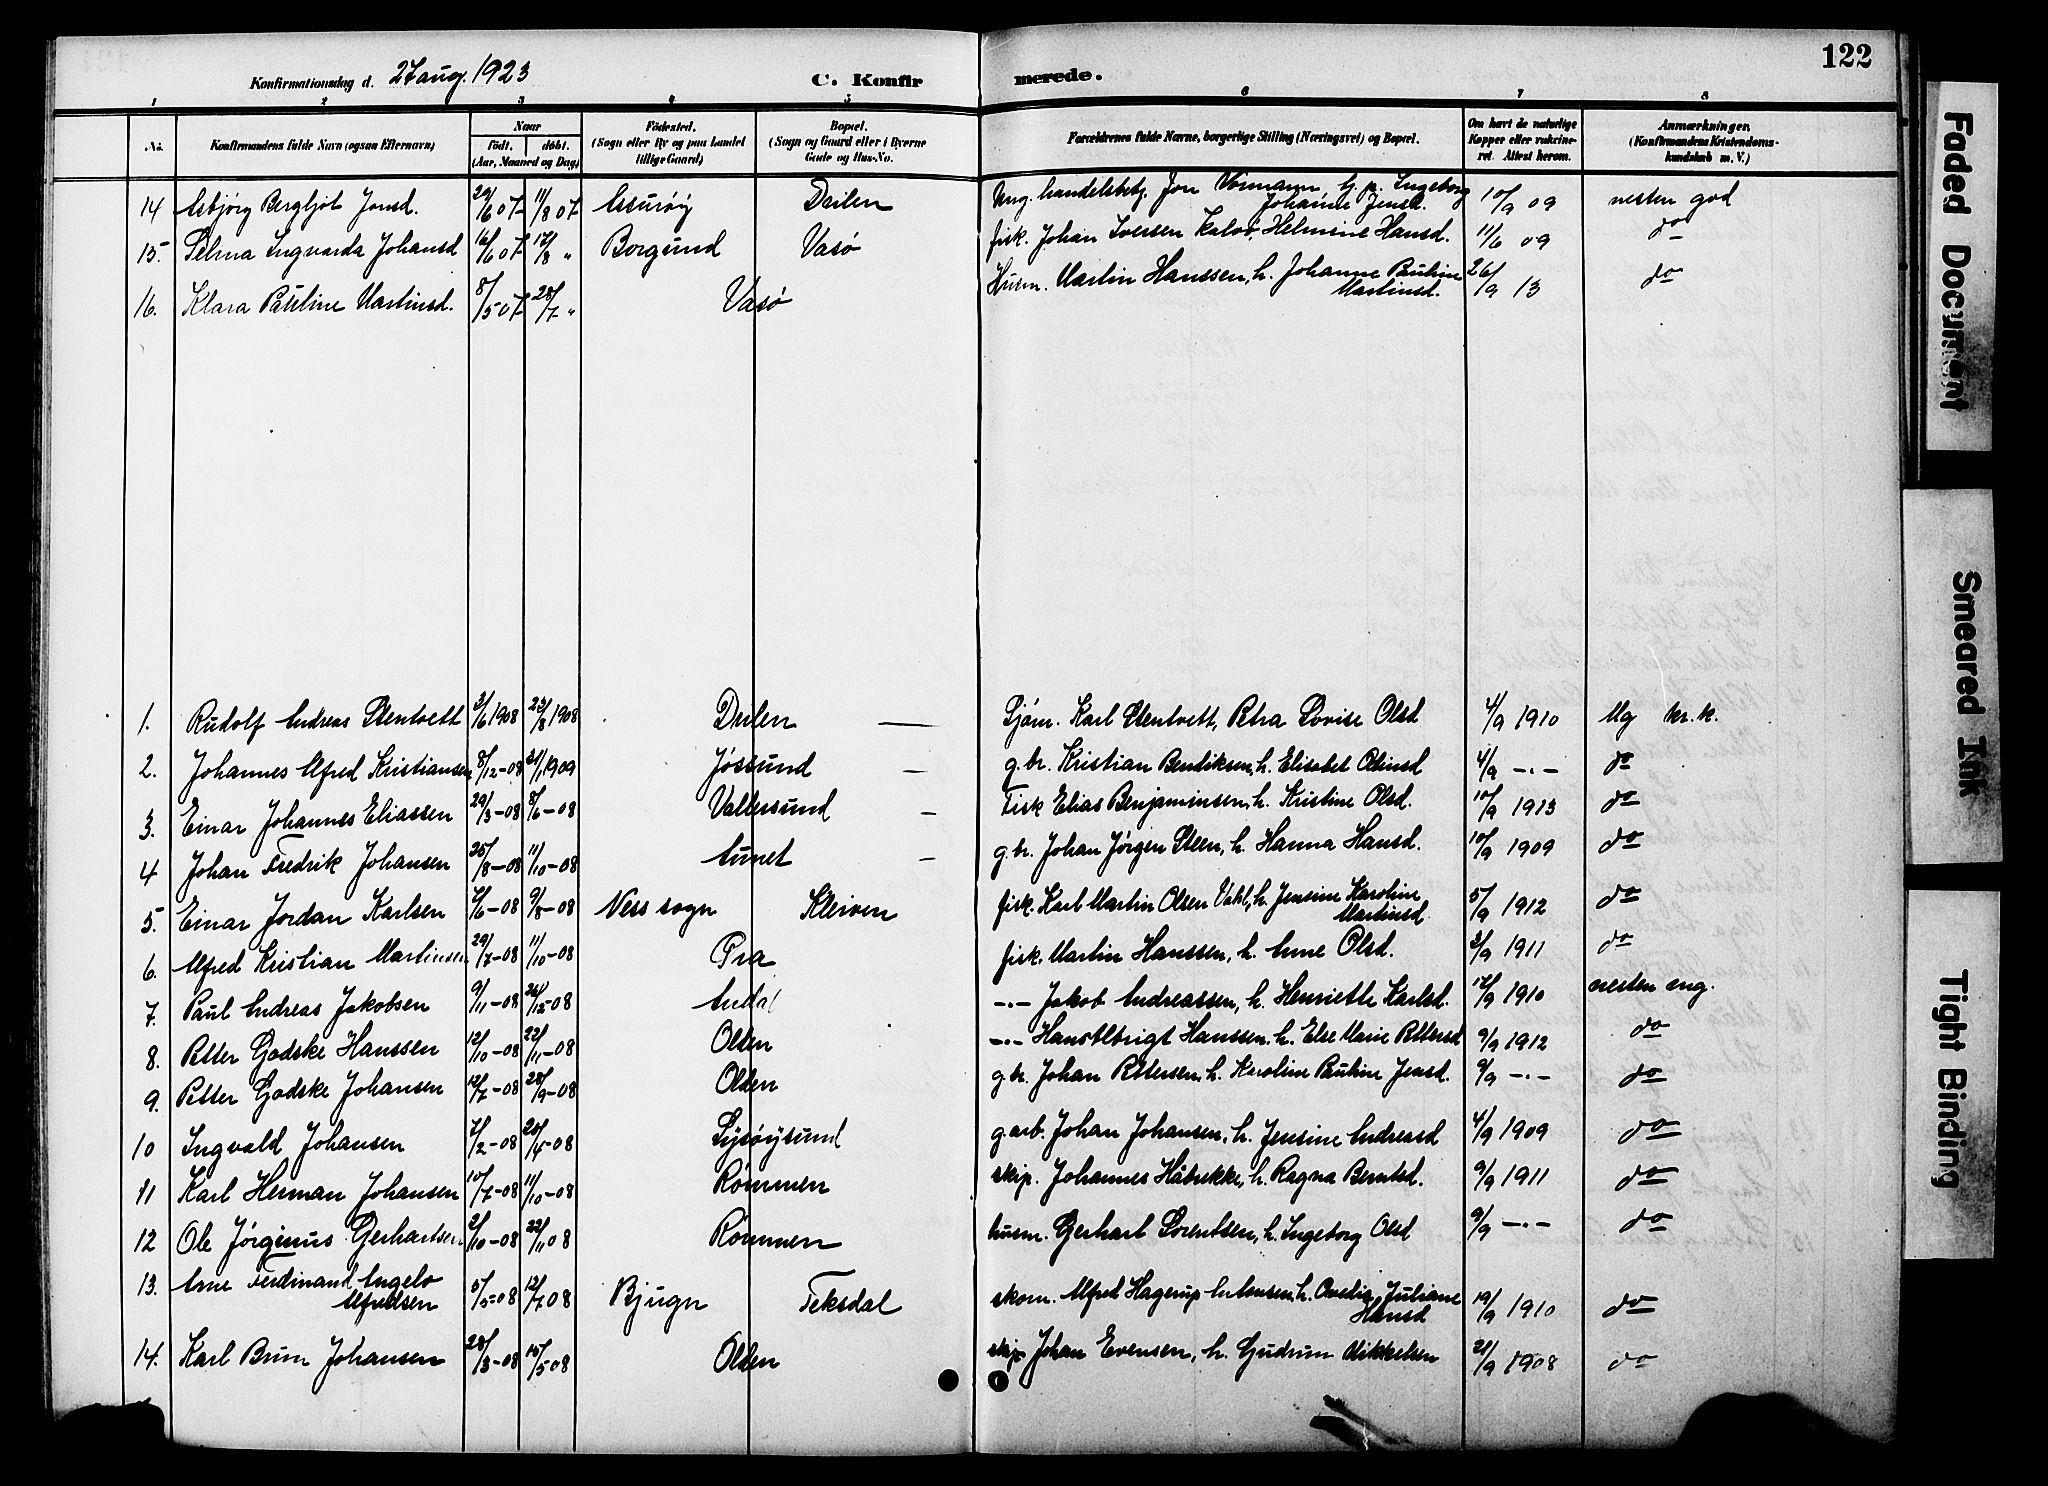 Konfirmationsdag d. 27 aug. 1923 C. Konfirmerede. 122
1 2 3 4 5 6 7 8
No. Konfirmandens fulde Navn (ogsaa Efternavn) Naar født. døbt. (Aar, Maaned og Dag) Fødested. (Sogn eller By og paa Landet tillige Gaard) Bopæl. (Sogn og Gaard eller i Byerne Gade og Hus-No. Forældrenes fulde Navne, borgerlige Stilling (Næringsvei) og Bopæl. Om havt de naturlige Kopper eller vakcineret. Attest herom. Anmærkninger. (Konfirmandens Kristendomskundskab m. V.)
14 Asbjørg Bergljot Jonsd. 29/6 07 11/8 07 Assurøy Deilen Ung. handelsbetj. Jon Normann, Ingeborg Johanne Jensd. 10/9 09 nesten god
15. Selma Ingvarda Johansd 16/6 07 17/8 " Borgund Vasø fisk. Johan Iversen Kalvø, Helmine Hansd. 11/6 09 do
16. Klara Pauline Martinsd. 8/5 07 28/7 " Vasø Husm. Martin Hanssen, h. Johanne Pauline Martinsd. 26/9 13 do
1. Rudolf Andreas Stentvett 3/6 1908 23/8 1908 Deilen — Sjøm. Karl Stentvett, Petra Lovise Olsd 4/9 1910 Mg kr.k.
2. Johannes Alfred Kristiansen 8/12-08 24/1 1909 Jøssund — g.br. Kristian Bendiksen, h. Elisabet Odinsd 4/9 -"- do
3. Einar Johannes Eliassen 29/3-08 8/6-08 Vallersund — Fisk Elias Benjaminsen, h. Kristine Olsd. 10/9 1913 do
4 Johan Fredrik Johansen 25/8-08 11/10-08 Aunet — g.br. Johan Jørgen Steen, h. Hanna Hansd. 10/9 1909 do
5. Einar Jordan Karlsen 7/6-08 9/8-08 Ness sogn Kleiven fisk. Karl Martin Olsen Vahl, h. Jensine Karoline Martinsd 5/9 1912 do
6. Alfred Kristian Martinsen 29/7-08 11/10-08 Pra fisk. Martin Hanssen, h. Anne Olsd. 3/9 1911 do
7. Paul Andreas Jakobsen 9/11-08 26/12-08 Audal -"- Jakob Andreassen, h. Henriette Karlsd. 17/9 1910 nesten mg.
8. Petter Godske Hanssen 12/10-08 22/11-08 Olden -"- Hans Albrigt Hanssen, h. Else Marie Pettersd 9/9 1912 do
9. Petter Godske Johansen 12/7-08 28/9-08 Olden g.br. Johan Pettersen, h. Karoline Pauline Jensd. 9/9 -"- do
10 Ingvald Johansen 7/2-08 20/4-08 Lysøysund g.arb. Johan Johansen, h. Jensine Andreasd 4/9 1909 do
11 Karl Herman Johansen 10/7-08 11/10-08 Rømmen skip. Johannes Håbrekke, h. Ragna Berntsd. 9/9 1911 do
12 Ole Jørginus Gerhartsen 2/10-08 22/11 08 Rømmen husm. Gerhart Lorentsen, h. Ingeborg Olsd 9/9 -"- do
13. Arne Ferdinand Angelo Alfredsen 5/5-08 12/7 08 Bjugn Teksdal skom. Alfred Hagerup Antonsen, h. Ovedia Juliane Hansd 19/9 1910 do
14. Karl Brun Johansen 28/3-08 15/5 08 Olden skip Johan Evensen, h. Gudrun Mikkelsen 21/9 1908 do
Faded Document
Smeared Ink
Tight Binding